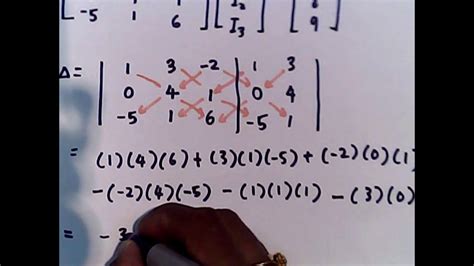 -5 1 6 I₃ 9
Δ = | 1 3 -2 | 1 3 |
0 4 1 0 4
-5 1 6 -5 1
= (1)(4)(6) + (3)(1)(-5) + (-2)(0)(1
-(-2)(4)(-5) - (1)(1)(1) - (3)(0)
= - 3